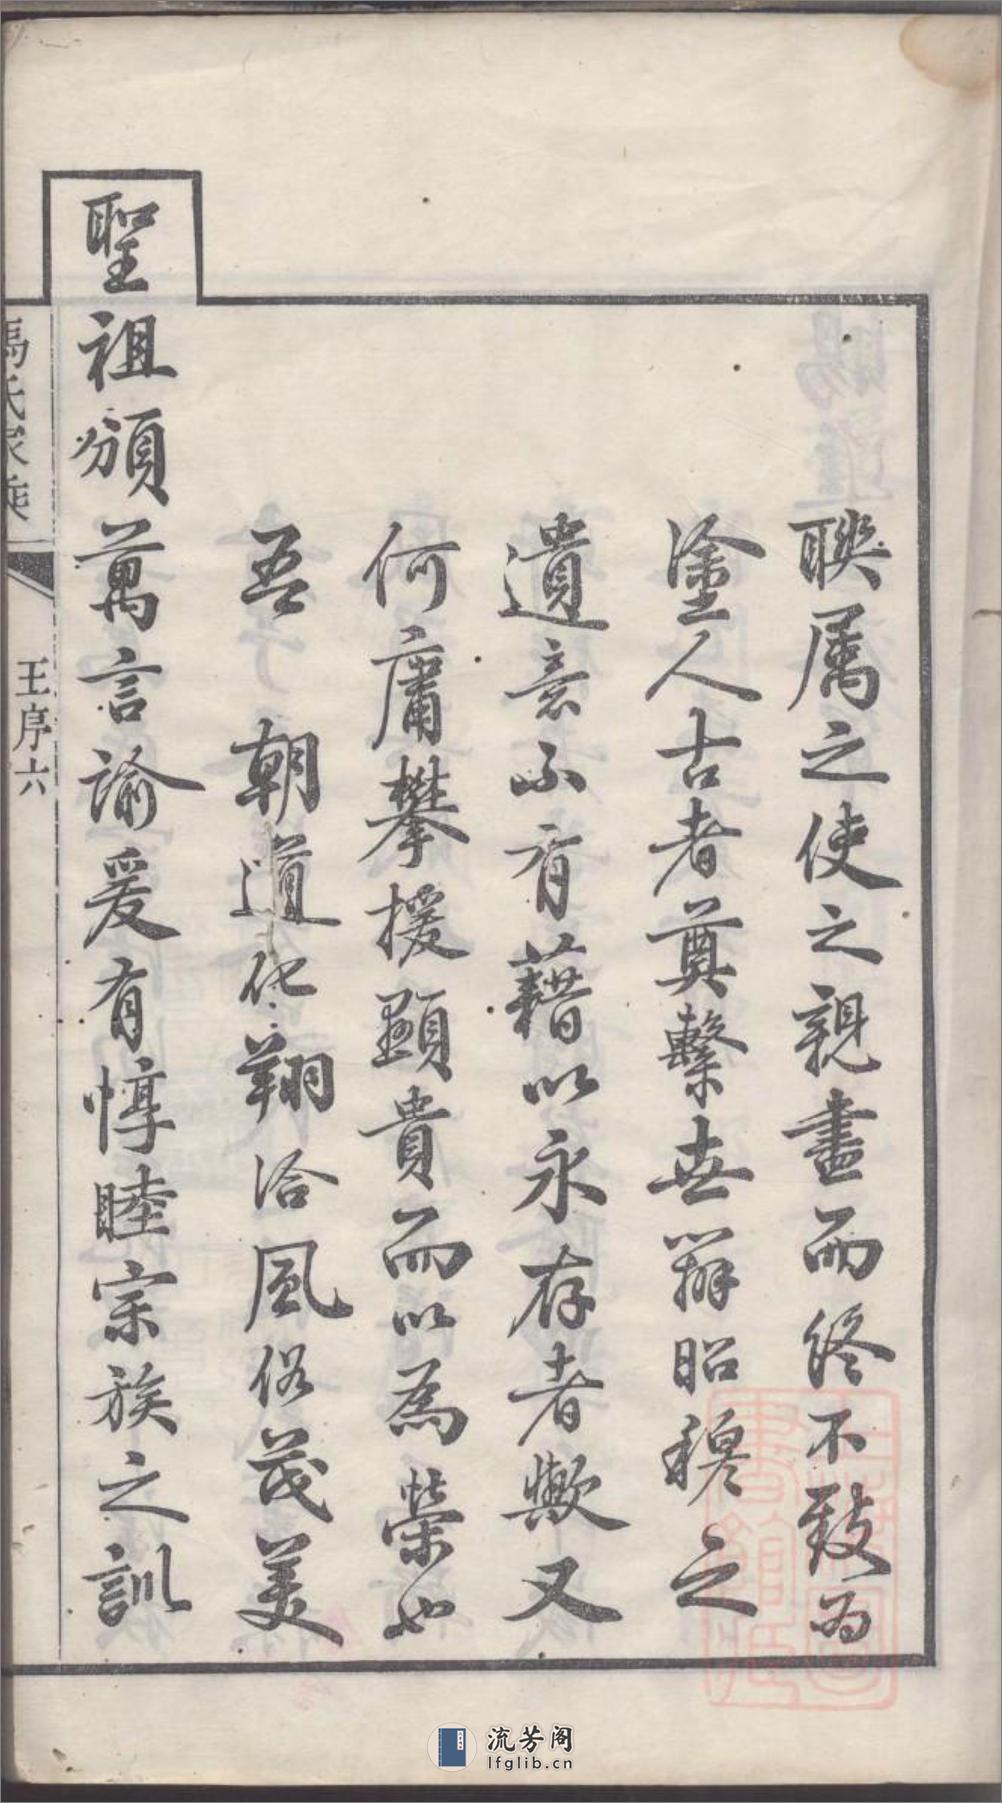 聯屬之使之親盡而終不致為
塗人古者奠繫世辨昭穆之
遺意不有藉以永存者歟又
何庸攀援顯貴而以為榮也
吾 朝道化翔洽風俗茂美
聖祖頒萬言諭爰有惇睦宗族之訓
馮氏家乘 王序六
流芳阁
lfglib.cn